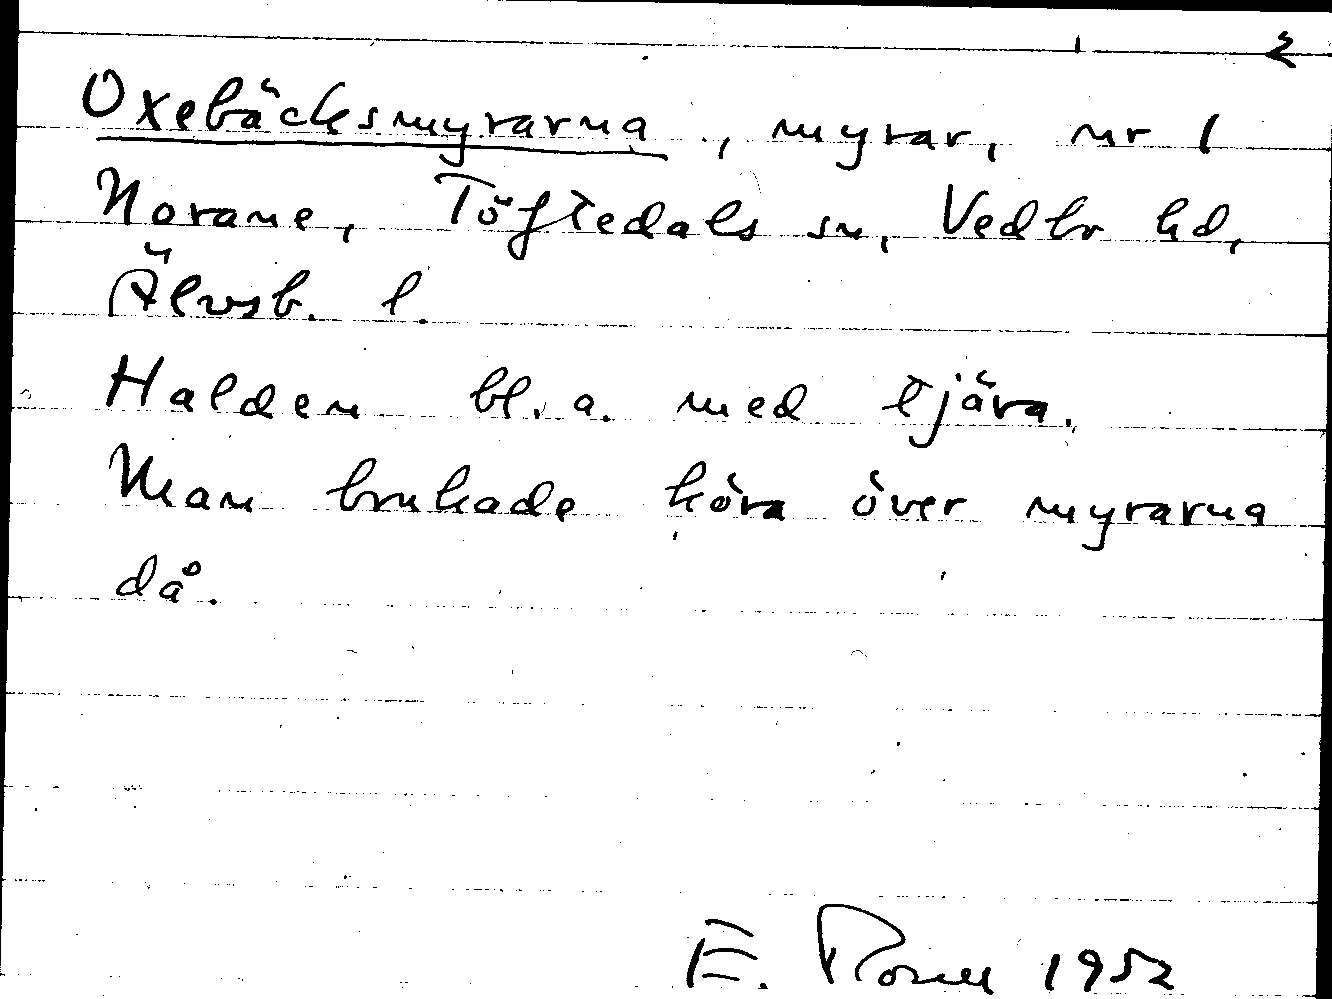 2
Oxebäcksmyrarna, myrar, nr 1
Norane, Töftedals sn, Vedbo hd,
Älvsb. l.
Halden bl. a. med tjära.
Man brukade köra över myrarna
då.
E. 1952